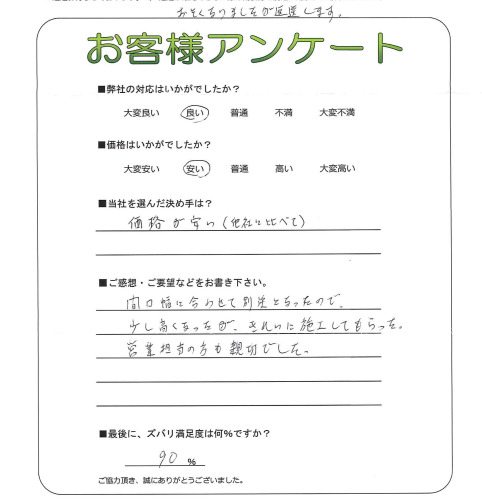 おそくなりましたが返送します。
お客様アンケート
■弊社の対応はいかがでしたか？
大変良い 良い 普通 不満 大変不満
■価格はいかがでしたか？
大変安い 安い 普通 高い 大変高い
■当社を選んだ決め手は？
価格が安い（他社に比べて）
■ご感想・ご要望などをお書き下さい。
間口幅に合わせて別注となったので、
少し高くなったが、きれいに施工してもらった。
営業担当の方も親切でした。
■最後に、ズバリ満足度は何％ですか？
90 ％
ご協力頂き、誠にありがとうございました。